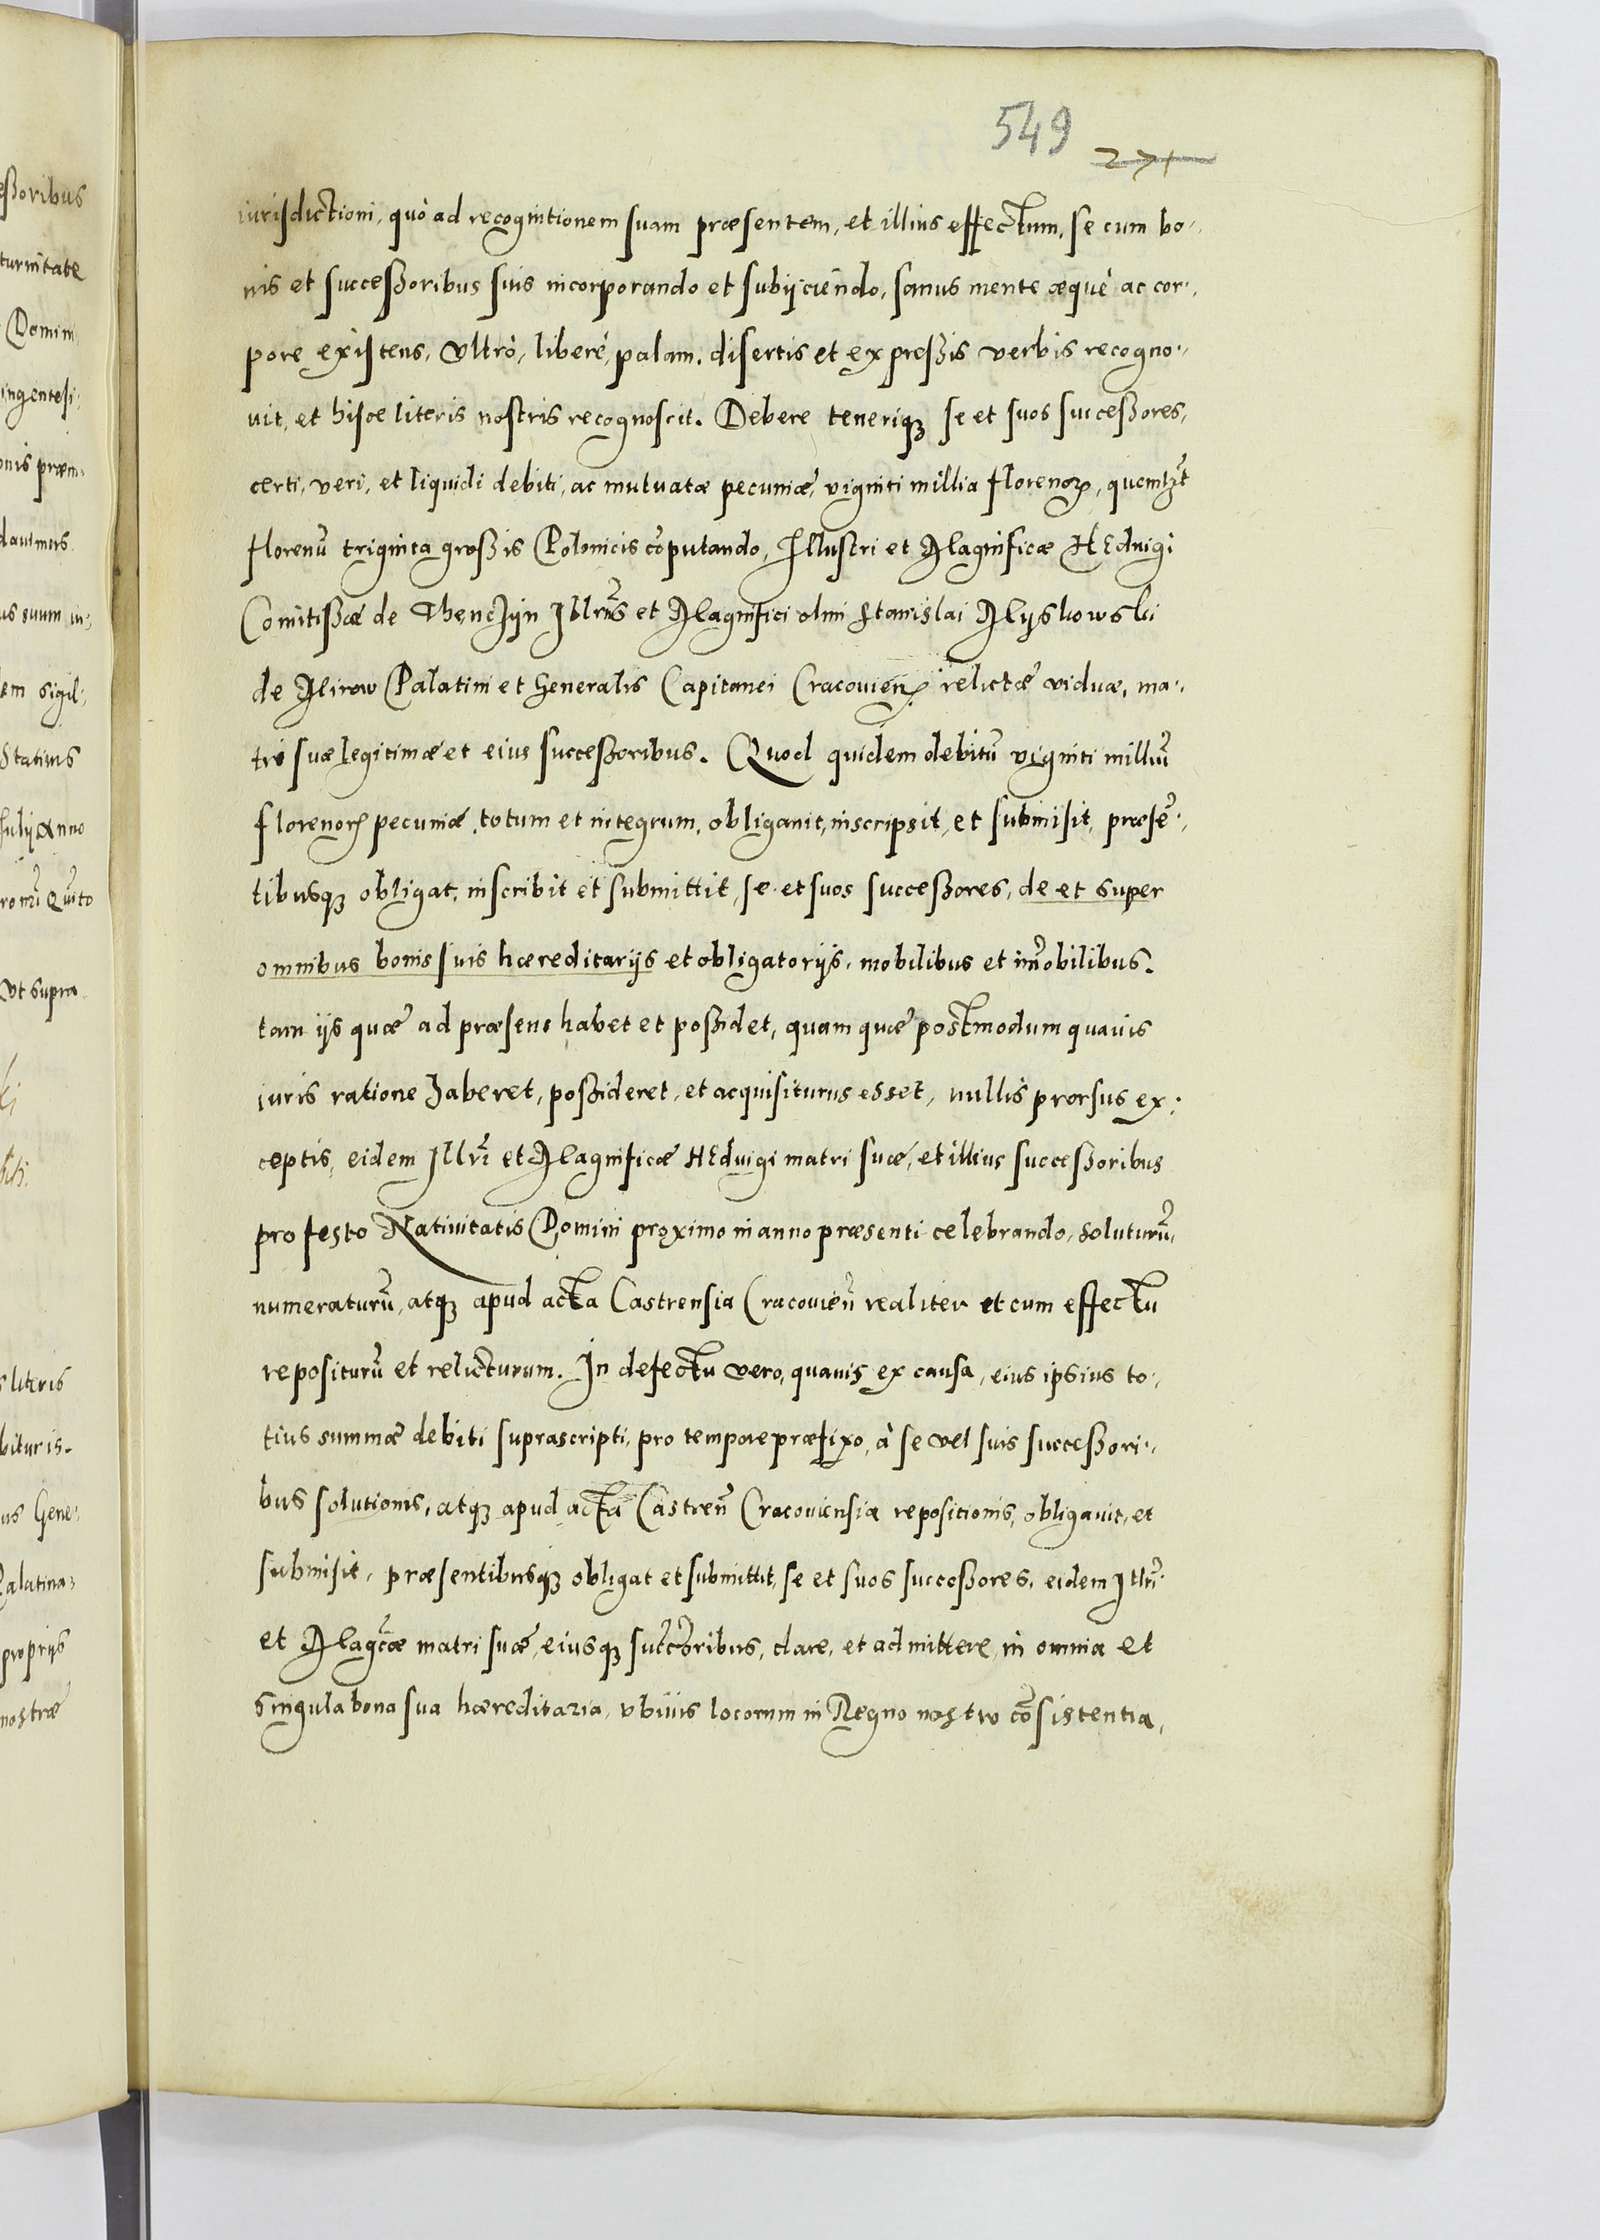 549
271
iurisdictioni, quò ad recognitionem suam præsentem, et illius effectum, se cum bo-
nis et successoribus suis incorporando et subijciendo, sanus mente æquè ac cor-
pore existens, Vltrò, liberè, palam, disertis et expressis verbis recogno-
uit, et hisce literis nostris recognoscit. Debere teneriq3 se et suos successores,
certi, veri, et liquidi debiti, ac mutuatæ pecuniæ, viginti millia florenoꝝ, quemlꝫt
florenũ triginta grossis Polonicis cõputando, Illustri et Magnificæ HEduigi
Comitissæ de Thenczijn Illrĩs et Magnifici olim Stanislai Mijskowski
de Mirow Palatini et Generalis Capitanei Cracouieñ relictæ viduæ, ma-
tri suæ legitimæ et eius successoribus. Quod quidem debitũ viginti milliũ
florenoꝝ pecuniæ, totum et integrum, obligauit, inscripsit, et submisit, præsẽ-
tibusq3 obligat, inscribit et submittit, se et suos successores, de et super
omnibus bonis suis hæreditarijs et obligatorijs, mobilibus et im̃obilibus.
tam ijs quæ ad præsens habet et possidet, quam quæ postmodum quauis
iuris ratione haberet, possideret, et acquisiturus esset, nullis prorsus ex-
ceptis, eidem Illrĩ et Magnificæ HEduigi matri suæ, et illius successoribus
pro festo Natiuitatis Domini proximo in anno præsenti celebrando, soluturũ,
numeraturũ, atq3 apud acta Castrensia Cracouieñ realiter et cum effectu
repositurũ et relicturum. In defectu vero, quauis ex causa, eius ipsius to-
tius summæ debiti suprascripti, pro tempore præfixo, à se vel suis successori-
bus solutionis, atq3 apud acta Castreñ Cracouiensia repositionis, obligauit, et
submisit, præsentibusq3 obligat et submittit, se et suos successores, eidem Illrĩ
et Magcæ̃ matri suæ, eiusq3 succ̃oribus, dare, et admittere, in omnia et
singula bona sua hæreditaria, vbiuis locorum in Regno nostro cõsistentia,